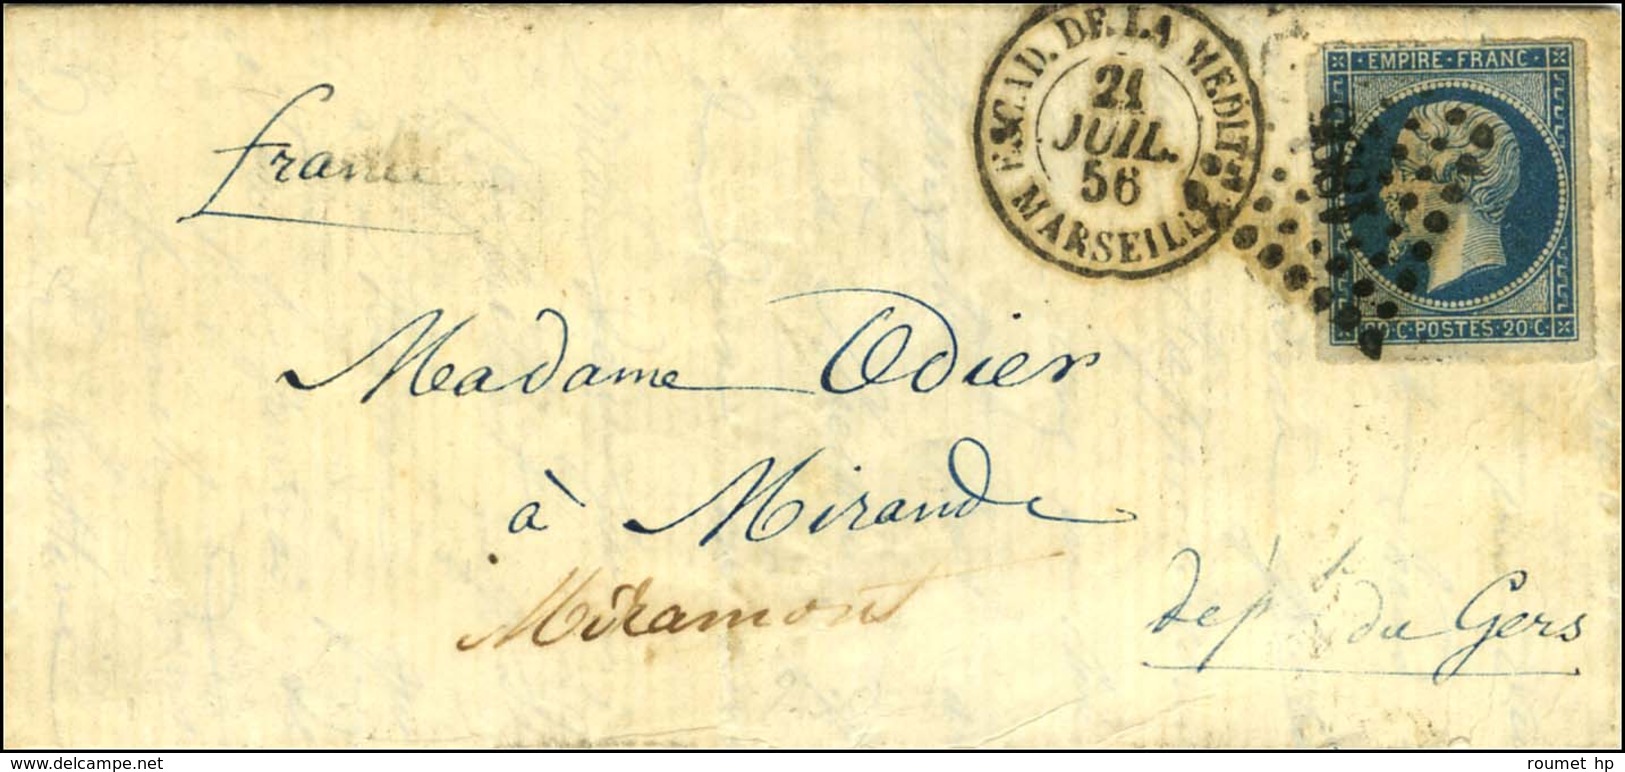 ESCAD. DE. LA MEDIT.
21
JUIL.
56
MARSEILLE
· EMPIRE · FRANC ·
20 · C · POSTES · 20 · C ·
France
Madame Odier
à Mirande
Miramont
dépt du Gers
© delcampe.net
roumet hp